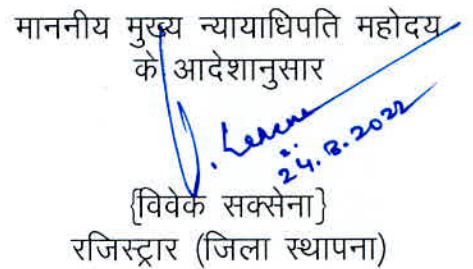 माननीय मुख्य न्यायाधिपति महोदय
के आदेशानुसार
24.8.2022
{विवेक सक्सेना}
रजिस्ट्रार (जिला स्थापना)